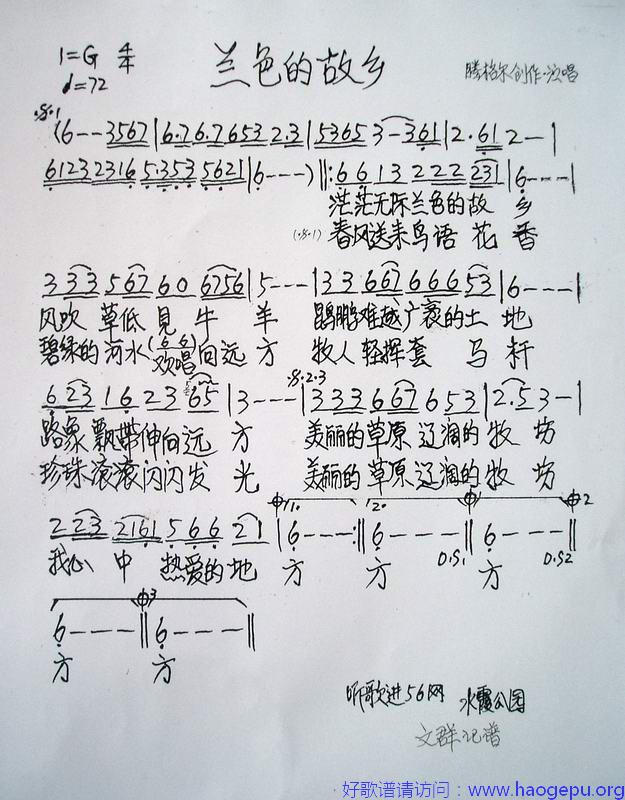 1=G 4/4 兰色的故乡 腾格尔创作·演唱
♩=72
·𝄋·1
(6--3567|6·7 6·7 653 2·3|5365 3-361|2·61 2-|
6123 2316 5·353 5621|6---)‖:6 6 1 3 2 2 2 231|6---|
茫茫无际兰色的故 乡
(·𝄋·1) 春风送来鸟语 花 香
3 33 5 67 6 0 6756|5---|3 3 6 67 6 6 6 53|6---|
风吹 草低 見 牛 羊 鹍鹏难越广袤的土 地
碧绿的 河水(6 6)欢唱向远 方 牧人 轻挥套 马 杆
·𝄋·2·3
6 23 1 6 2 3 65|3---|3 3 3 6 67 6 5 3|2·5 3-|
路象 飘带伸向远 方 美丽的草原 辽阔的 牧 坊
珍珠 滚滚闪闪发 光 美丽的草原 辽阔的 牧 坊
1. 2. 1 2
2 23 2161 5 6 6 21|6---:‖6---‖6---‖
D.S1 D.S2
我心 中 热爱的 地 方 方 方
3
6---‖6---‖
方 方
听歌进56网 水霞公园
文群记谱
好歌谱请访问：www.haogepu.org